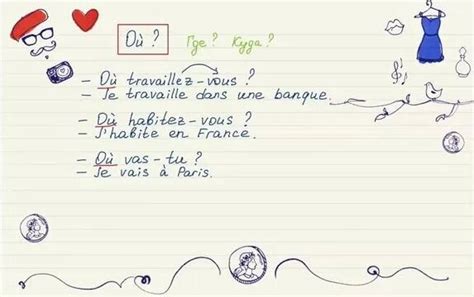 Où ? Где ? Куда ?
– Où travaillez-vous ?
– Je travaille dans une banque.
– Où habitez-vous ?
– J'habite en France.
– Où vas-tu ?
– Je vais à Paris.